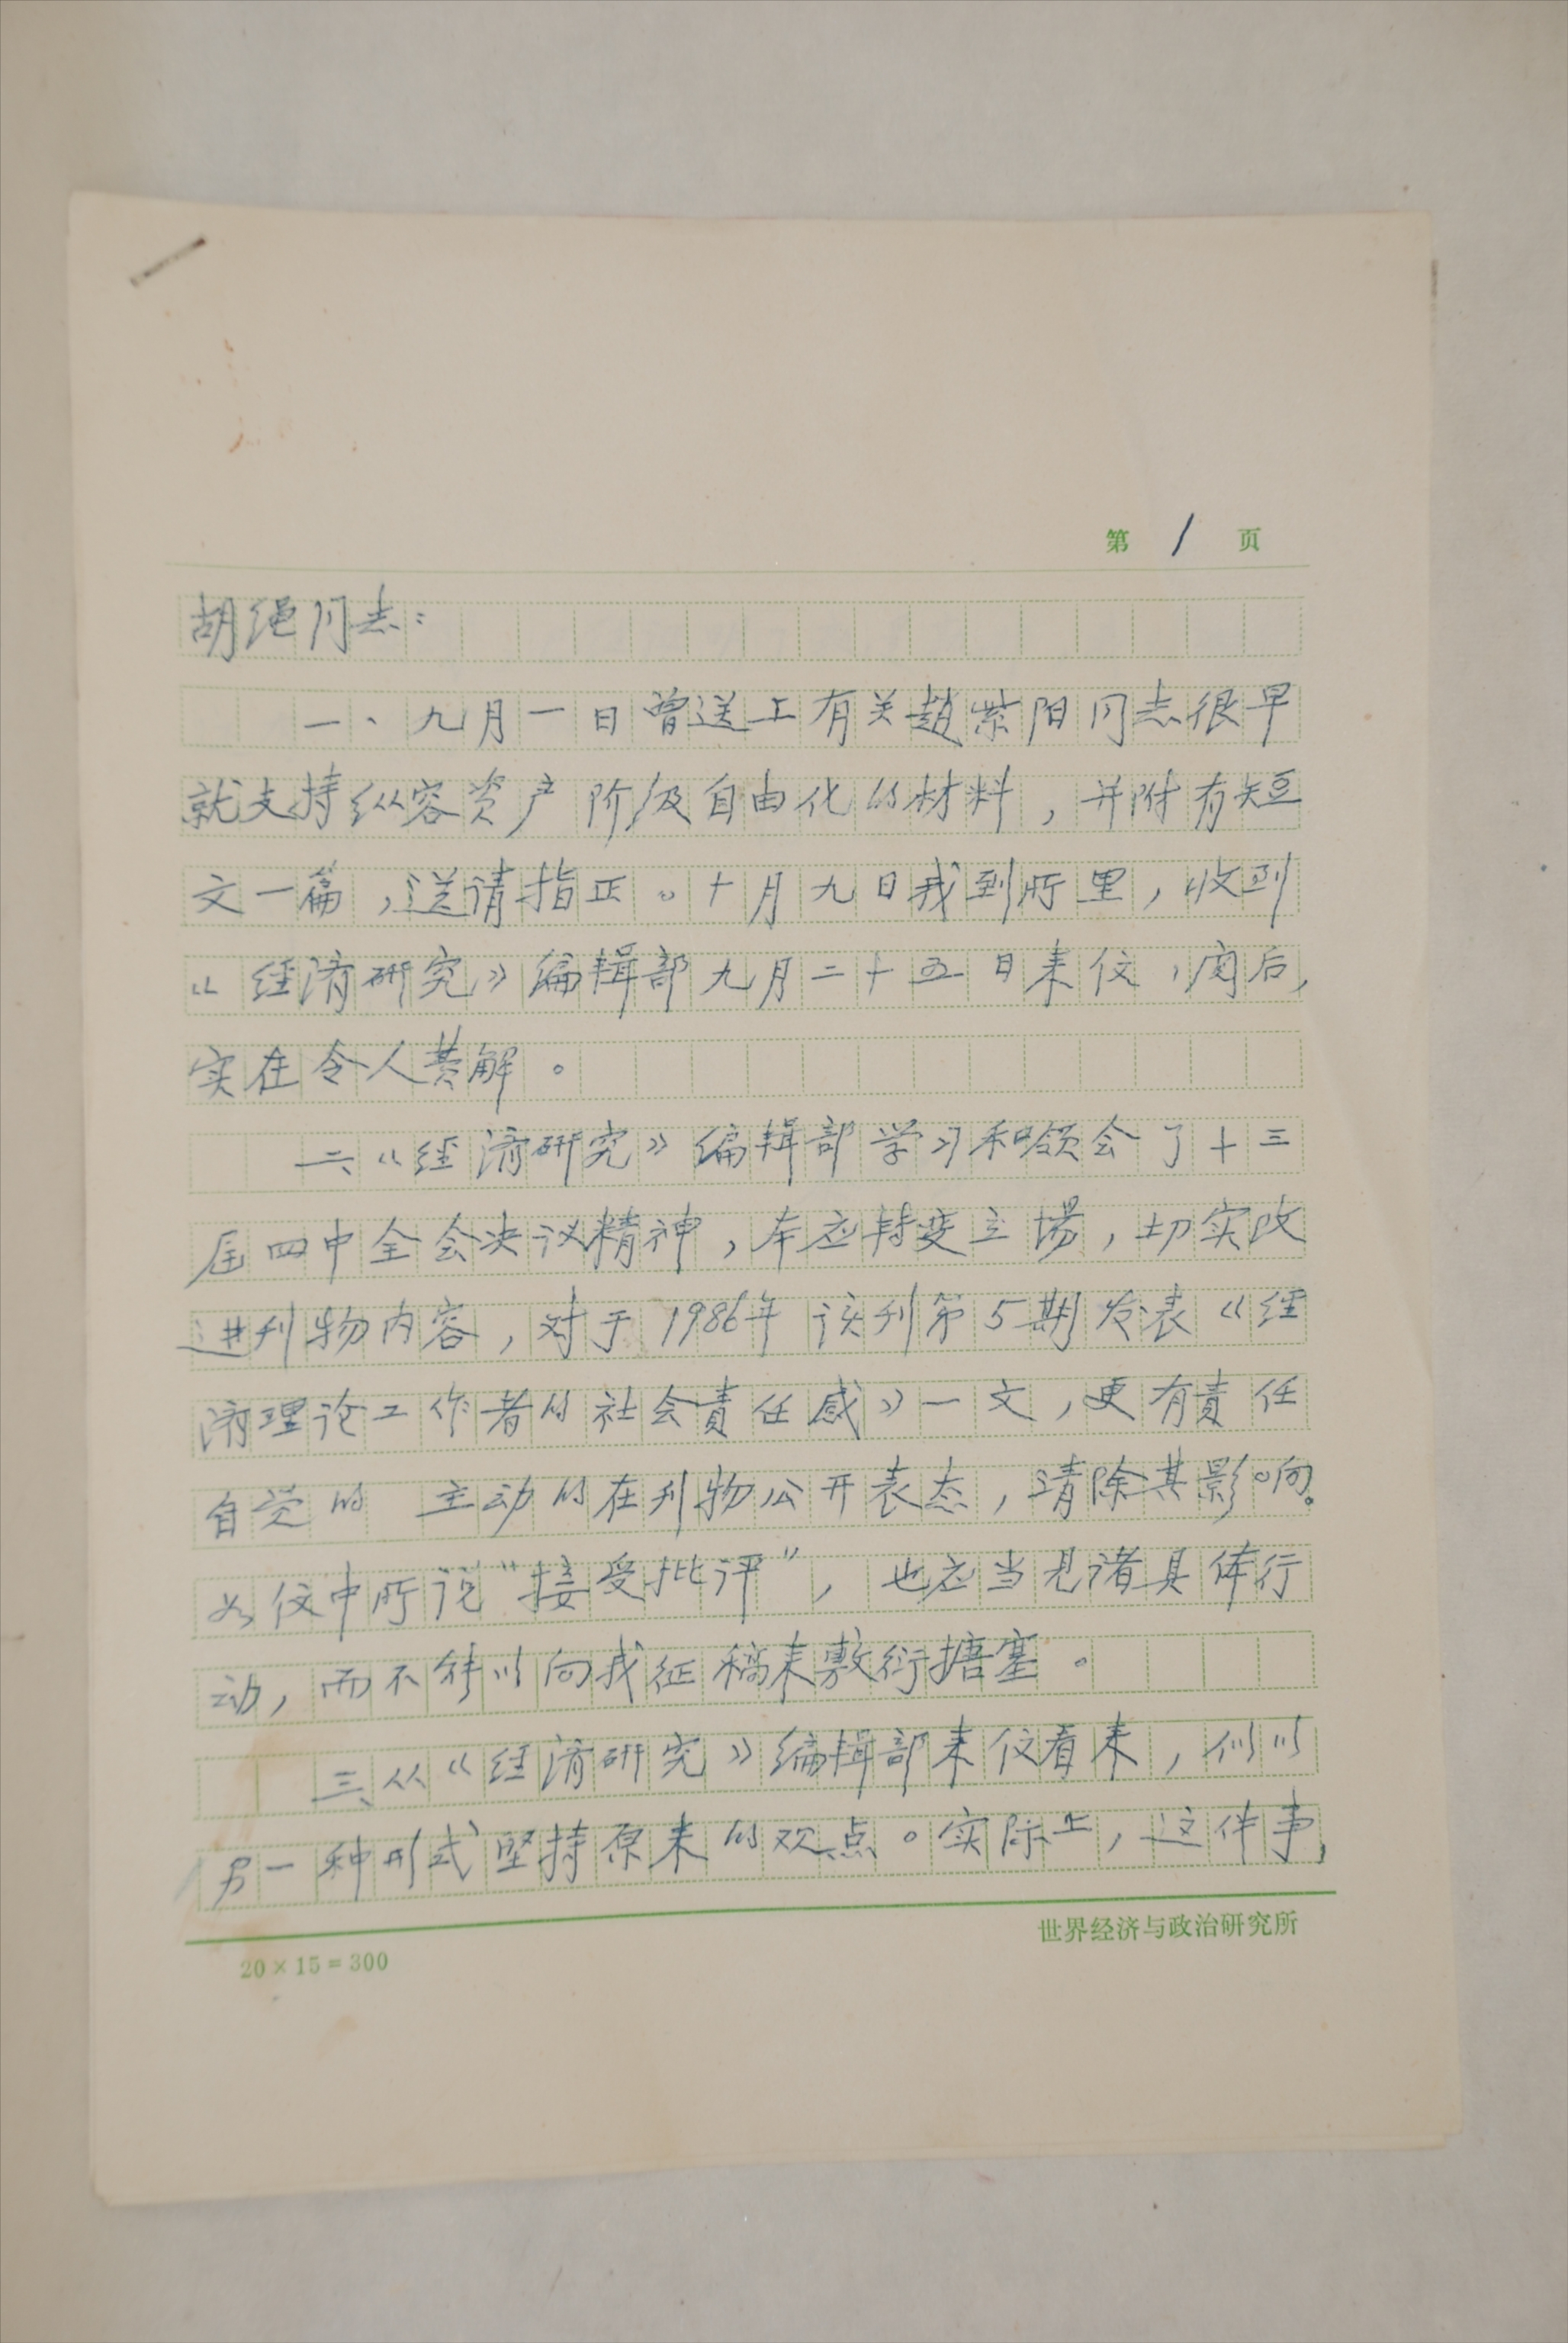 第 1 页
胡绳同志：
一、九月一日曾送上有关赵紫阳同志很早
就支持纵容资产阶级自由化的材料，并附有短
文一篇，送请指正。十月九日我到所里，收到
《经济研究》编辑部九月二十五日来信，阅后，
实在令人费解。
二、《经济研究》编辑部学习和领会了十三
届四中全会决议精神，本应转变立场，切实改
进刊物内容，对于1986年该刊第5期发表《经
济理论工作者的社会责任感》一文，更有责任
自觉的 主动的在刊物公开表态，清除其影响。
如信中所说“接受批评”，也应当见诸具体行
动，而不能以向我征稿来敷衍搪塞。
三、从《经济研究》编辑部来信看来，似以
另一种形式坚持原来的观点。实际上，这件事，
世界经济与政治研究所
20×15=300